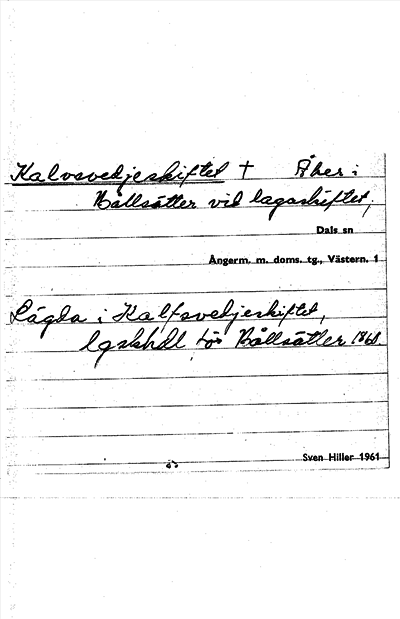 Kalvsvedjeskiftet † Åker i
Bållsätter vid lagaskiftet,
Dals sn
Ångerm. m. doms. tg., Västern. 1
Lägda i Kalfsvedjeskiftet,
lgskhdl för Bållsätter 1868.
Sven Hiller 1961